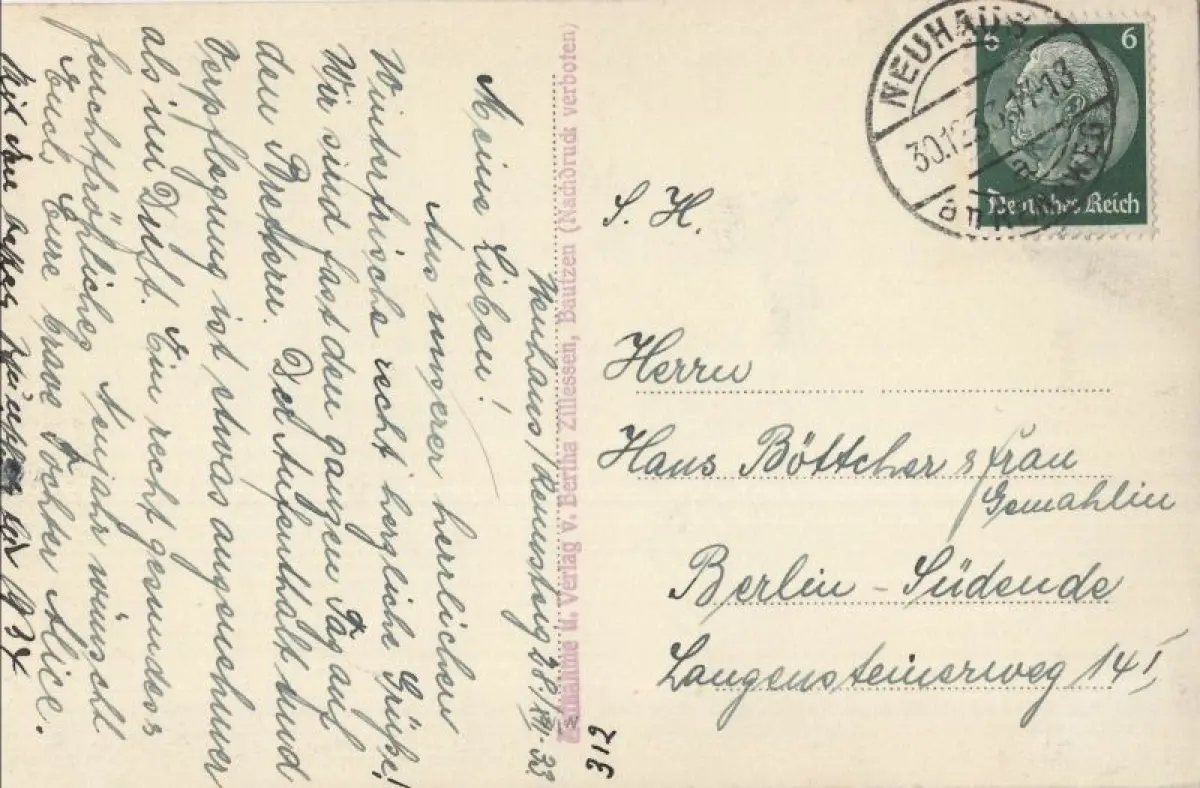 Neuhaus/Rennsteig 28. XII. 33.
Meine Lieben!
Aus unserer herrlichen
Winterfrische recht herzliche Grüße!
Wir sind fast den ganzen Tag auf
den Brettern. Der Aufenthalt und
Verpflegung ist etwas angenehmer
als im Dift. Ein recht gesundes
feuchtfröhliches Neujahr wünscht
Euch Eure brave Tochter Alice.
Mit den besten für 1934
Aufnahme u. Verlag v. Bertha Zillessen, Bautzen (Nachdruck verboten)
312
NEUHAUS
30.12.33.17-18
am RENNWEG
6 6
Deutsches Reich
S. H.
Herrn
Hans Böttcher & Frau
Gemahlin
Berlin - Südende
Langensteinerweg 14 I,